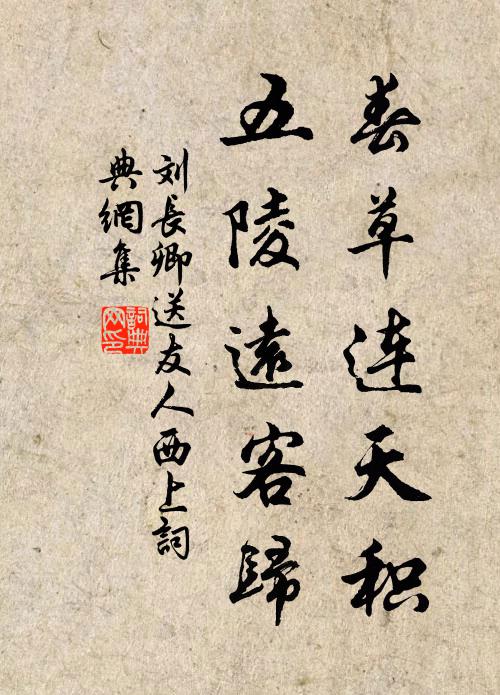 春草連天积
五陵遠客歸
刘長卿送友人西上詞
典網集
詞典网印